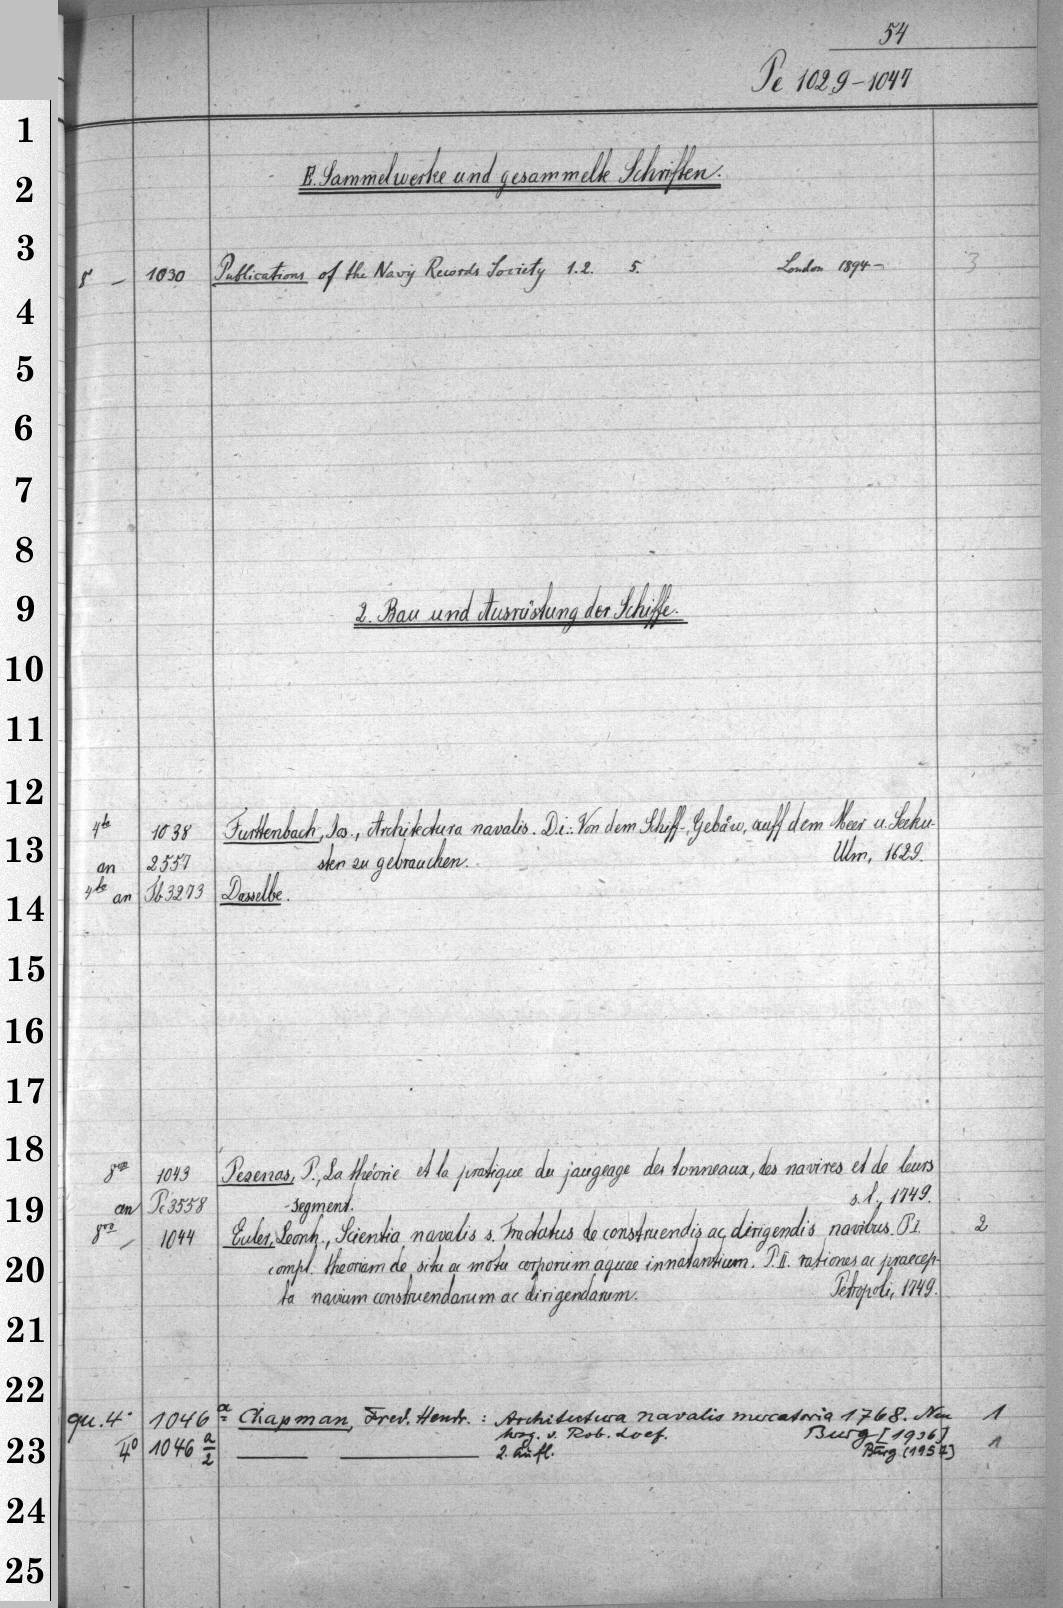 54
Pe 1029-1047
1
E. Sammelwerke und gesammelte Schriften.
2
3
8° — 1030 Publications of the Navy Records Society 1.2. 5. London 1894- 3
4
5
6
7
8
9
2. Bau und Ausrüstung der Schiffe.
10
11
12
4to 1038 Furttenbach, Jos., Architectura navalis. D.i.: Von dem Schiff-Gebäw, auff dem Meer u. Seeku-
13
an 2557 sten zu gebrauchen. Ulm, 1629.
4to an 3273 Dasselbe.
14
15
16
17
18
8vo 1043 Pezenas, P., La théorie et la pratique du jaugeage des tonneaux, des navires et de leurs
19
an Pc 3558 segment. s.l., 1749.
8vo — 1044 Euler, Leonh., Scientia navalis s. Tractatus de construendis ac dirigendis navibus. P I. 2
20
compl. theoriam de situ ac motu corporum aquae innatantium. P. II. rationes ac praecep-
ta navium construendarum ac dirigendarum. Petropoli, 1749.
21
22
qu. 4° 1046 a Chapman, Fred. Hendr.: Architectura navalis mercatoria 1768. Neu 1
hrsg. v. Rob. Loef. Burg [1936]
23
4° 1046 a/2 — — 2. Aufl. Burg (1957) 1
24
25